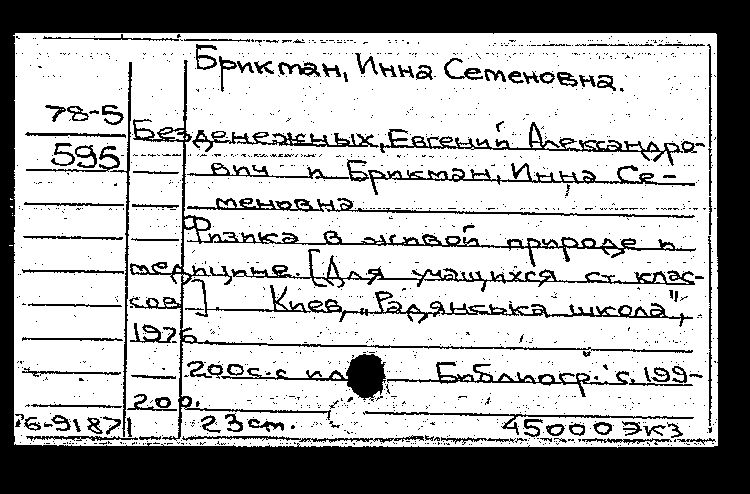 Брикман, Инна Семеновна.
78-5
595
Безденежных, Евгений Александро-
вич и Брикман, Инна Се-
меновна
Физика в живой природе и
медицине. [Для учащихся ст. клас-
сов]. Киев, „Радянська школа",
1976.
200с. с ил. Библиогр.: с. 199-
200.
76-91871 23 см. 45000 экз